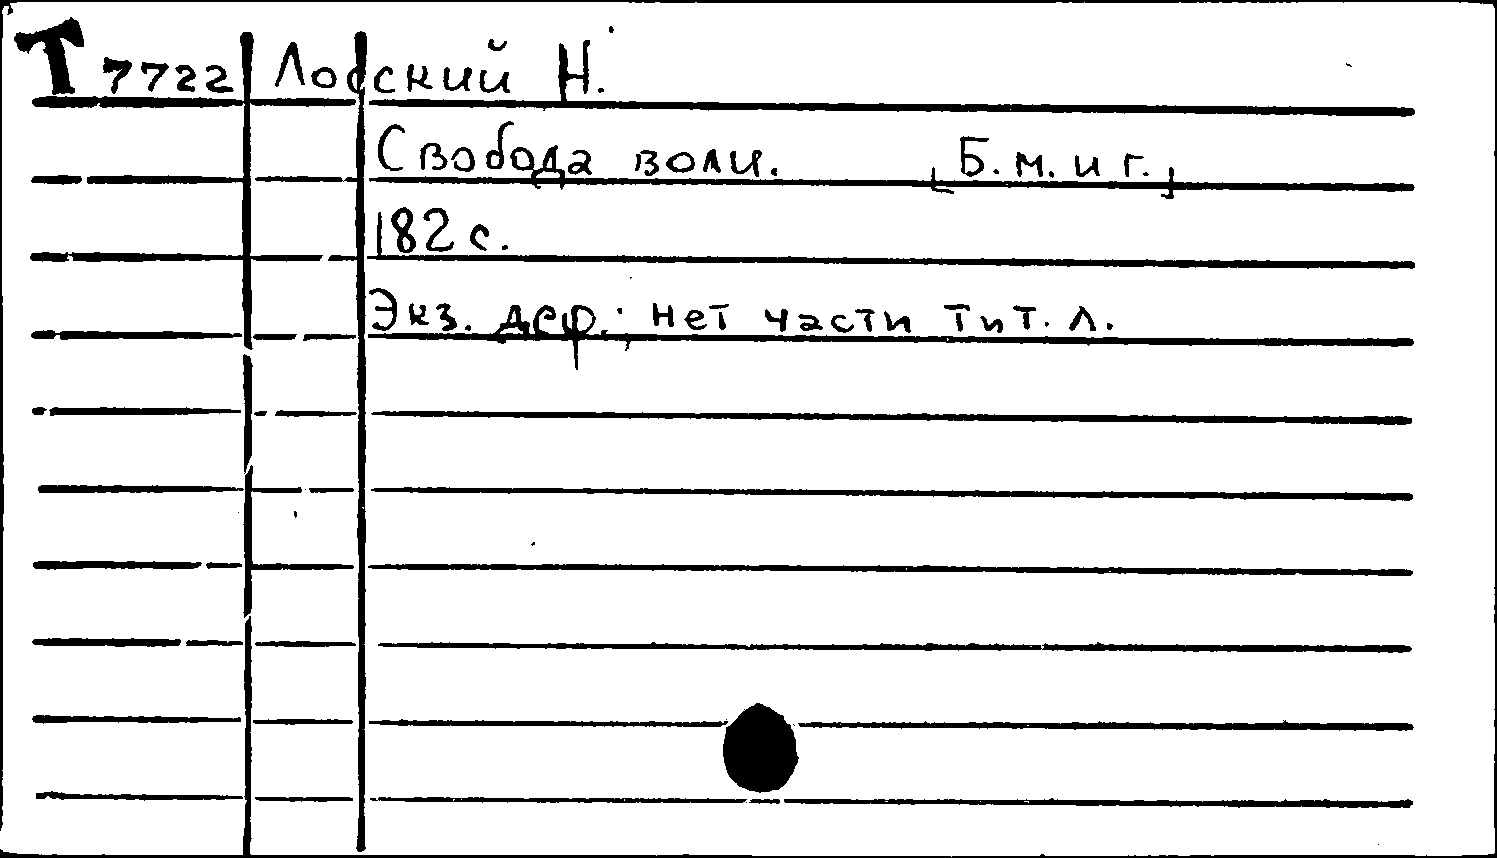 Т 7722 Лосский Н.
Свобода воли. [Б.м. и г.]
182 с.
Экз. деф.: нет части тит. л.